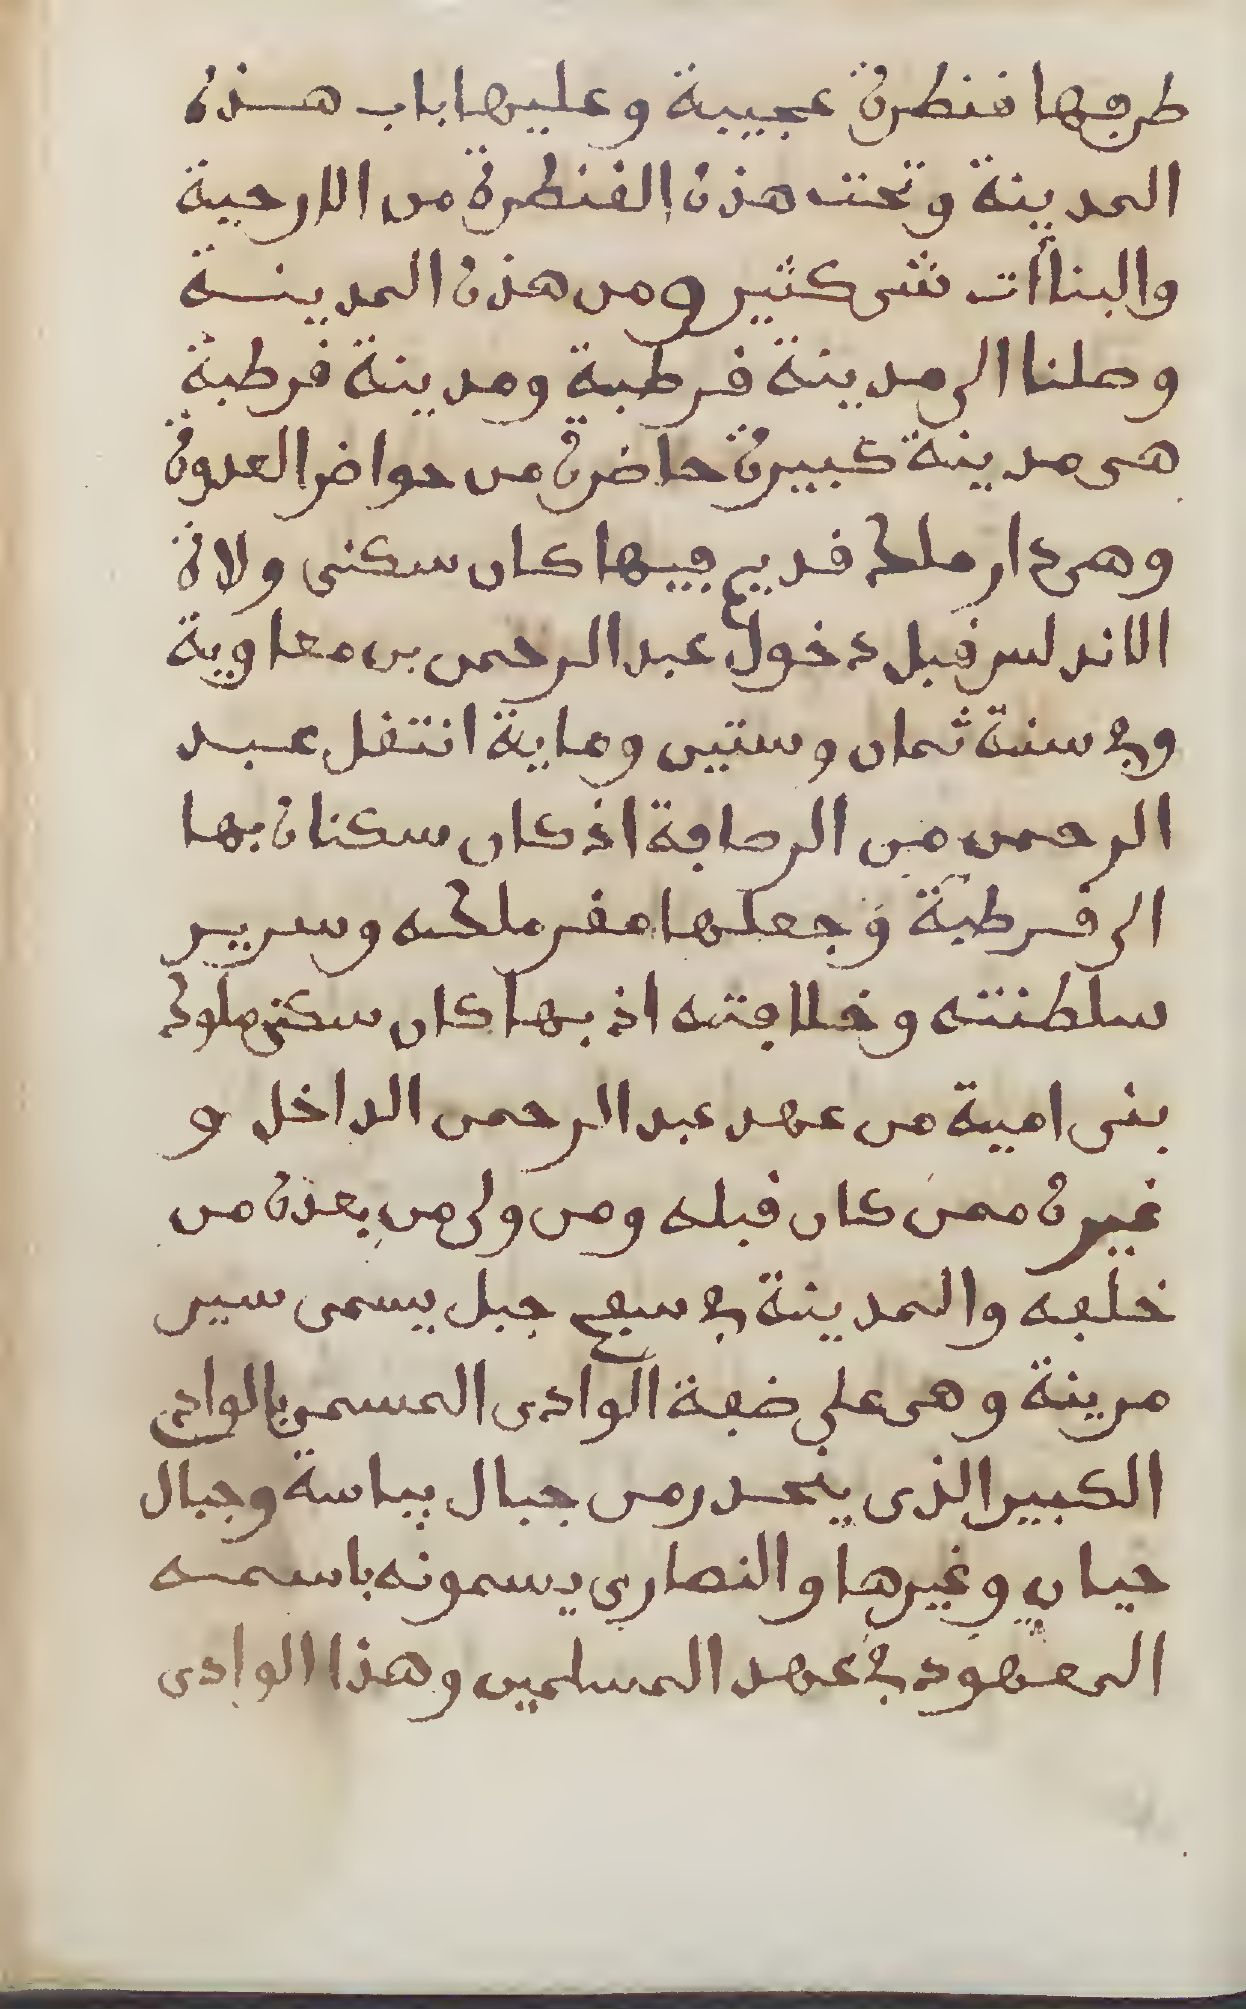 طرفها قنطرة عجيبة وعليها باب هذه
المدينة وتحت هذه القنطرة من الارحية
والبناأت شى كثير ومن هذه المدينة
وصلنا الى مدينة قرطبة ومدينة قرطبة
هى مدينة كبيرة حاضرة من حواضر العدوة
وهى دار ملك قديم فيها كان سكنى ولاة
الاندلس قبل دخول عبد الرحمن بن معاوية
وفي سنة ثمان وستين وماية انتقل عبد
الرحمن من الرصافة اذ كان سكناه بها
الى قرطبة وجعلها مقر ملكه وسرير
سلطنته وخلافته اذ بها كان سكنى ملوك
بنى امية من عهد عبد الرحمن الداخل و
غيره ممن كان قبله ومن ولى من بعده من
خلفه والمدينة في سفح جبل يسمى سير
مرينة وهى على ضفة الوادى المسمى بالوادى
الكبير الذى ينحدر من جبال بياسة وجبال
جيان وغيرها والنصارى يسمونه باسمه
المعهود في عهد المسلمين وهذا الوادى